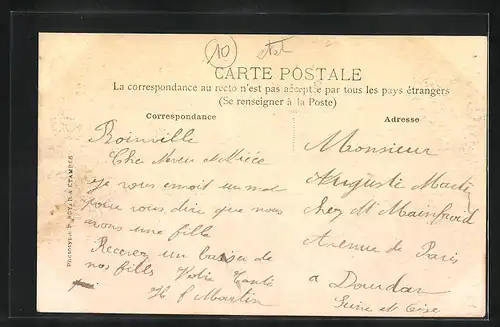 10
CARTE POSTALE
La correspondance au recto n'est pas acceptée par tous les pays étrangers
(Se renseigner à la Poste)
Correspondance
Adresse
Boinville
Cher Neveu et Nièce
je vous envoit un mot
pour vous dire que nous
avons une fille
Recevez un baiser de
nos fills Votre Tante
H P Martin
Monsieur
Auguste Martin
chez Mr Mainfroid
Avenue de Paris
a Dourdan
Seine et Oise
Phototypie ROYER A ETAMPES